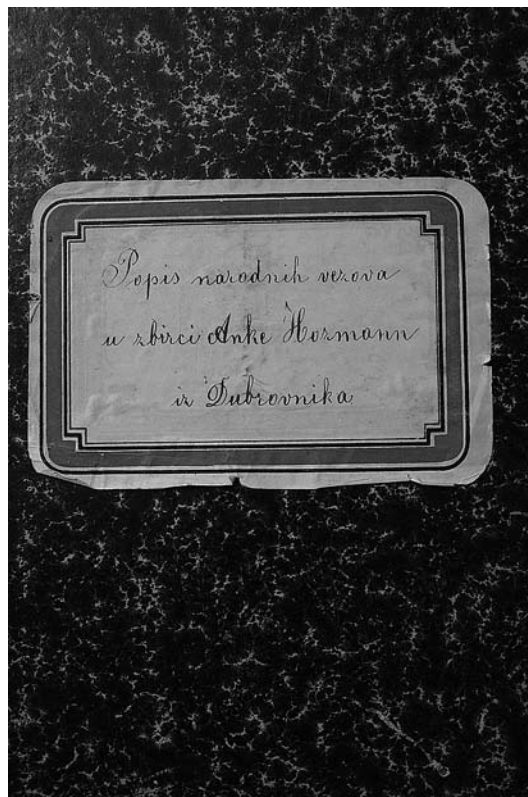 Popis narodnih vezova
u zbirci Anke Hozmann
iz Dubrovnika